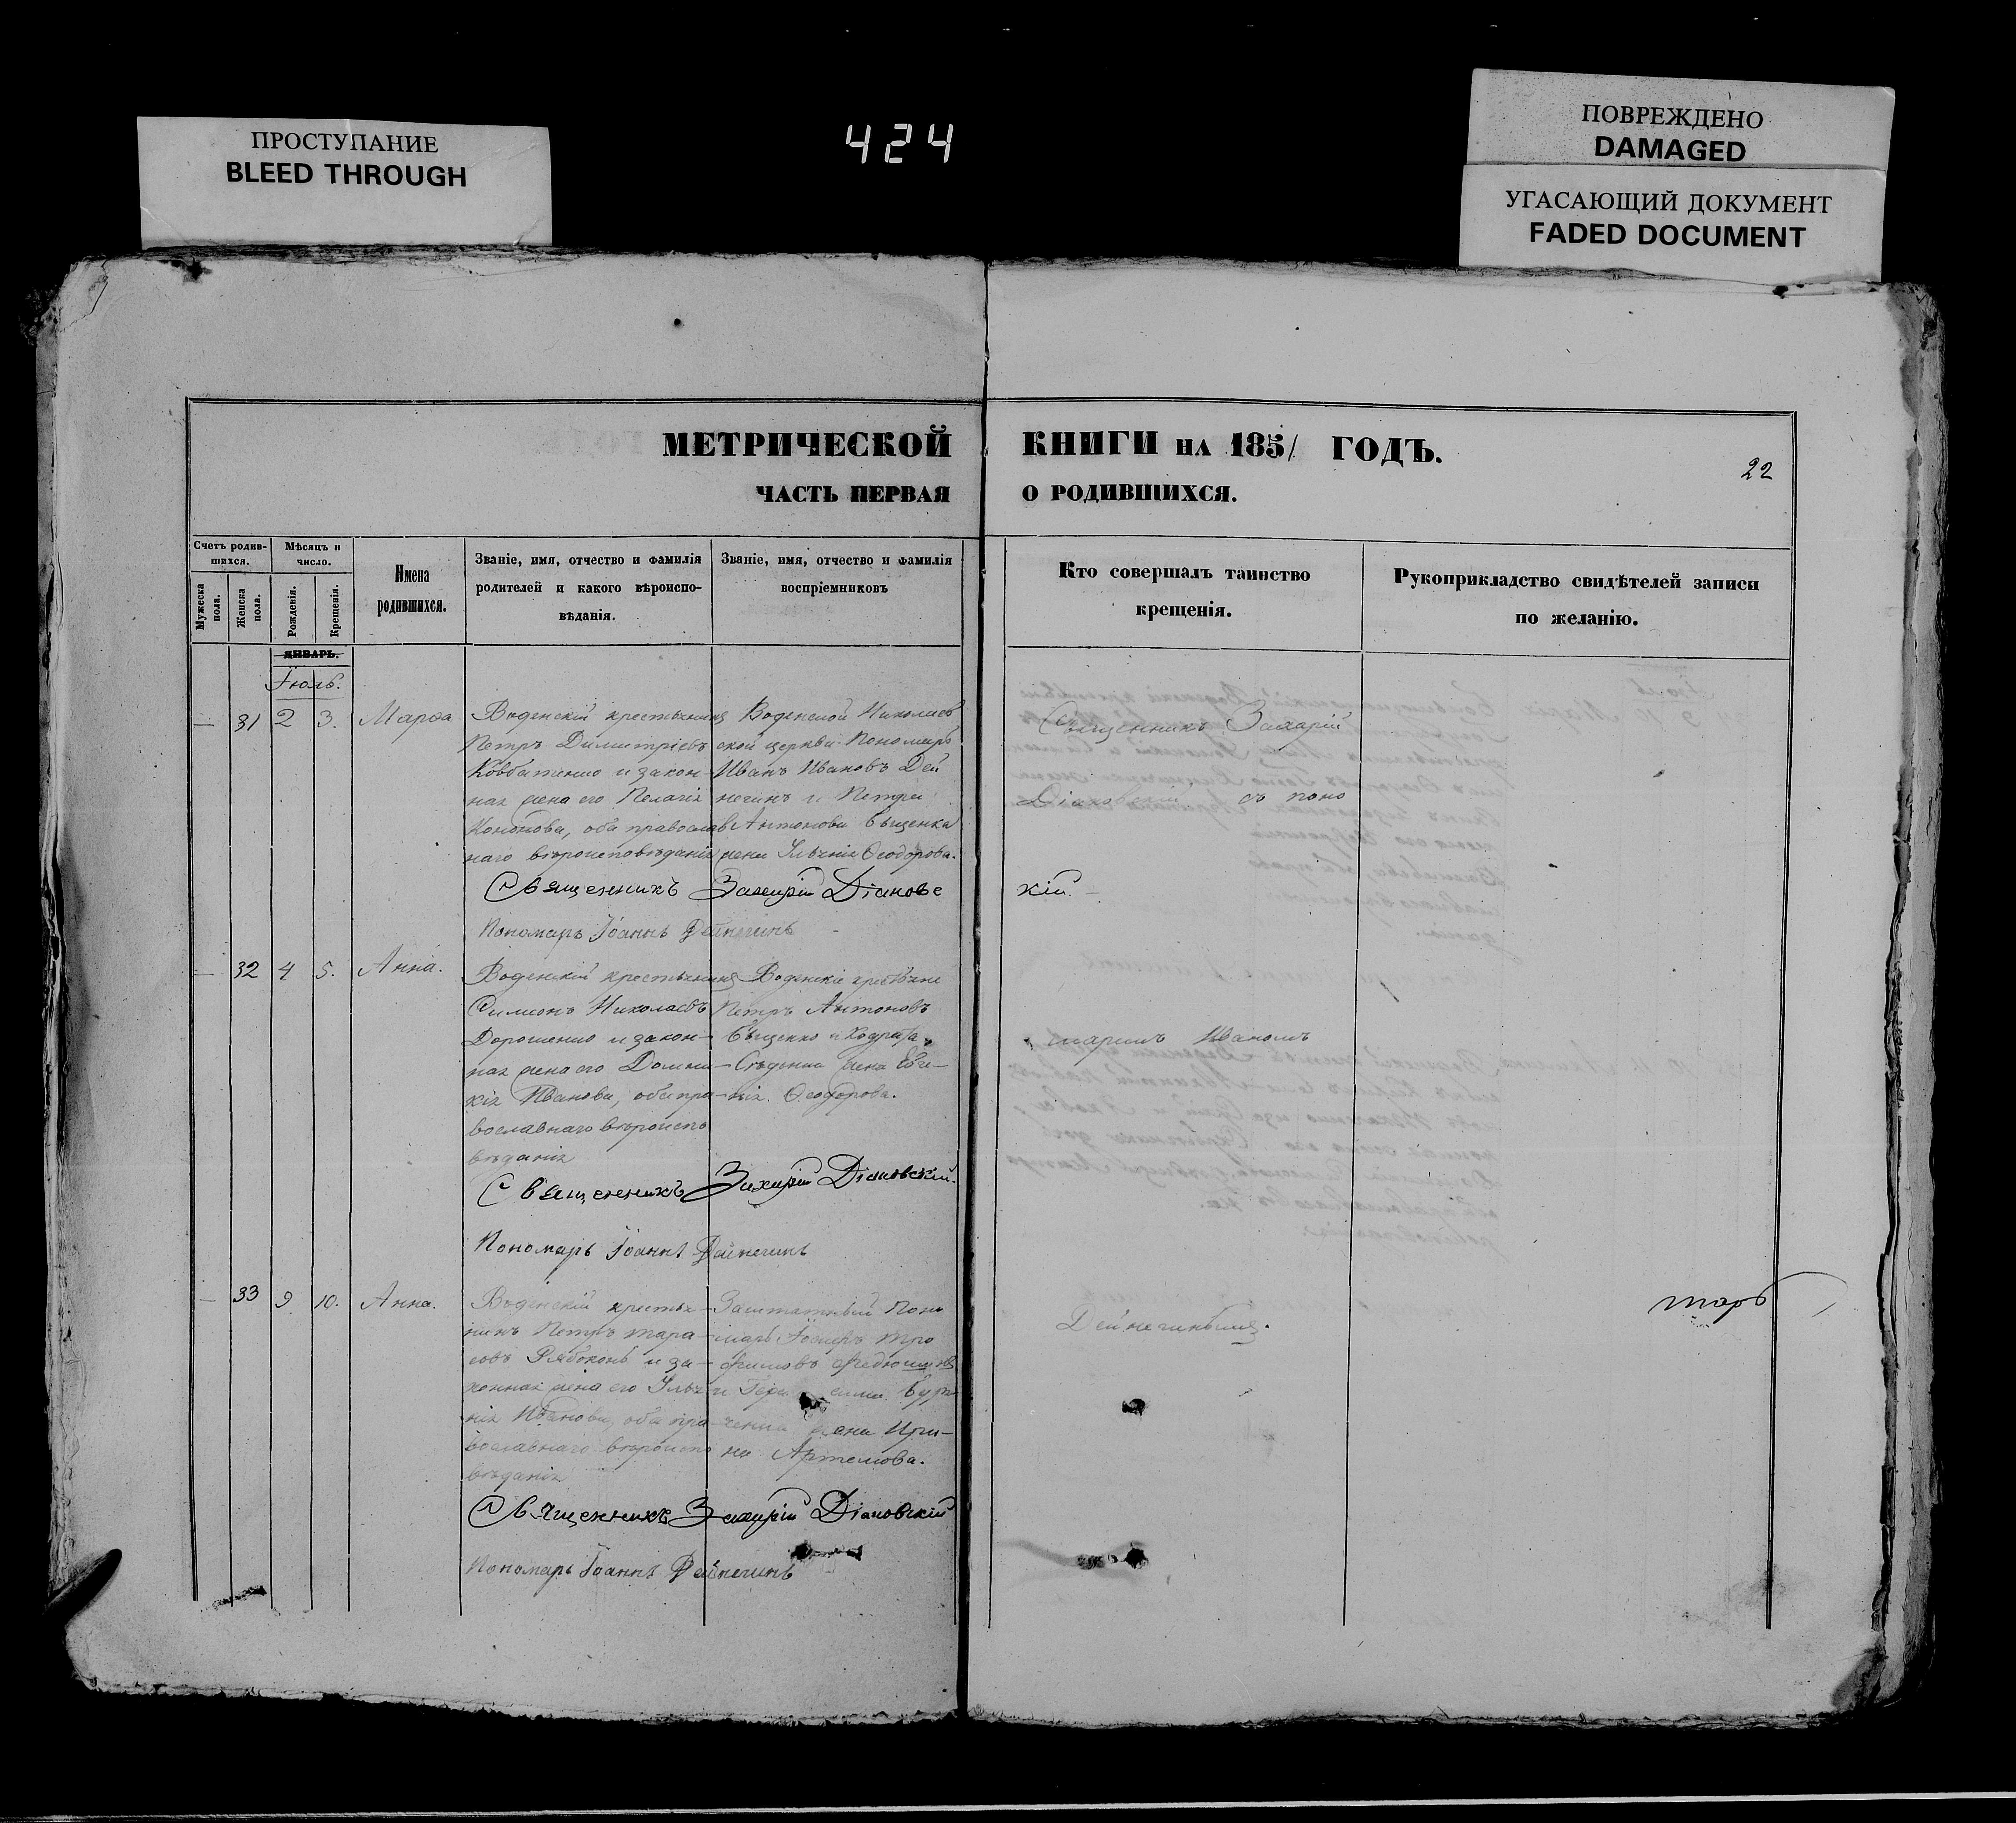 ПРОСТУПАНИЕ
BLEED THROUGH
424
ПОВРЕЖДЕНО
DAMAGED
УГАСАЮЩИЙ ДОКУМЕНТ
FADED DOCUMENT
МЕТРИЧЕСКОЙ КНИГИ НА 1851 ГОДЪ.
22
ЧАСТЬ ПЕРВАЯ О РОДИВШИХСЯ.
Счетъ родив-
шихся.
Мужеска
пола.
Женска
пола.
Мѣсяцъ и
число.
Рожденія.
Крещенія.
Имена
родившихся.
Званіе, имя, отчество и фамилія
родителей и какого вѣроиспо-
вѣданія.
Званіе, имя, отчество и фамилія
воспріемниковъ
Кто совершалъ таинство
крещенія.
Рукоприкладство свидѣтелей записи
по желанію.
ЯНВАРЬ.
Іюль.
— 31 2 3. Марѳа
Воденскій крестьянинъ
Петръ Димитріевъ
и закон-
ная жена его Пелагія
Кононова, оба православ
наго вѣроисповѣданія
Воденской Николаев
ской церкви Пономарь
Иванъ Ивановъ Дей
нечинъ и Петра
Антонова
жена Ульянія Ѳеодорова.
Священникъ Захарій Діаковс
кій.
Пономарь Іоаннъ Дейнечинъ
Священникъ Захарій
Діаковскій съ поно
— 32 4 5. Анна.
Воденскій крестьянинъ
Симеонъ Николаевъ
Дорошенко и закон-
ная жена его Домни-
кія Иванова, оба пра-
вославнаго вѣроиспо
вѣданія
Воденскіе крестьяне
Петръ Антоновъ
жена Евге-
нія Ѳеодорова.
Священникъ Захарій Діаковскій.
Пономарь Іоаннъ Дейнечинъ
маремъ Иваномъ
— 33 9 10. Анна.
Воденскій крестья-
нинъ Петръ Тара-
совъ Рябоконь и за-
конная жена его Улья
нія Иванова, оба пра-
вославнаго вѣроиспо
вѣданія
Заштатный Поно
марь
фимовъ
жена Ири-
на Артемова.
Священникъ Захарій Діаковскій
Пономарь Іоаннъ Дейнечинъ
Дейнечинымъ.